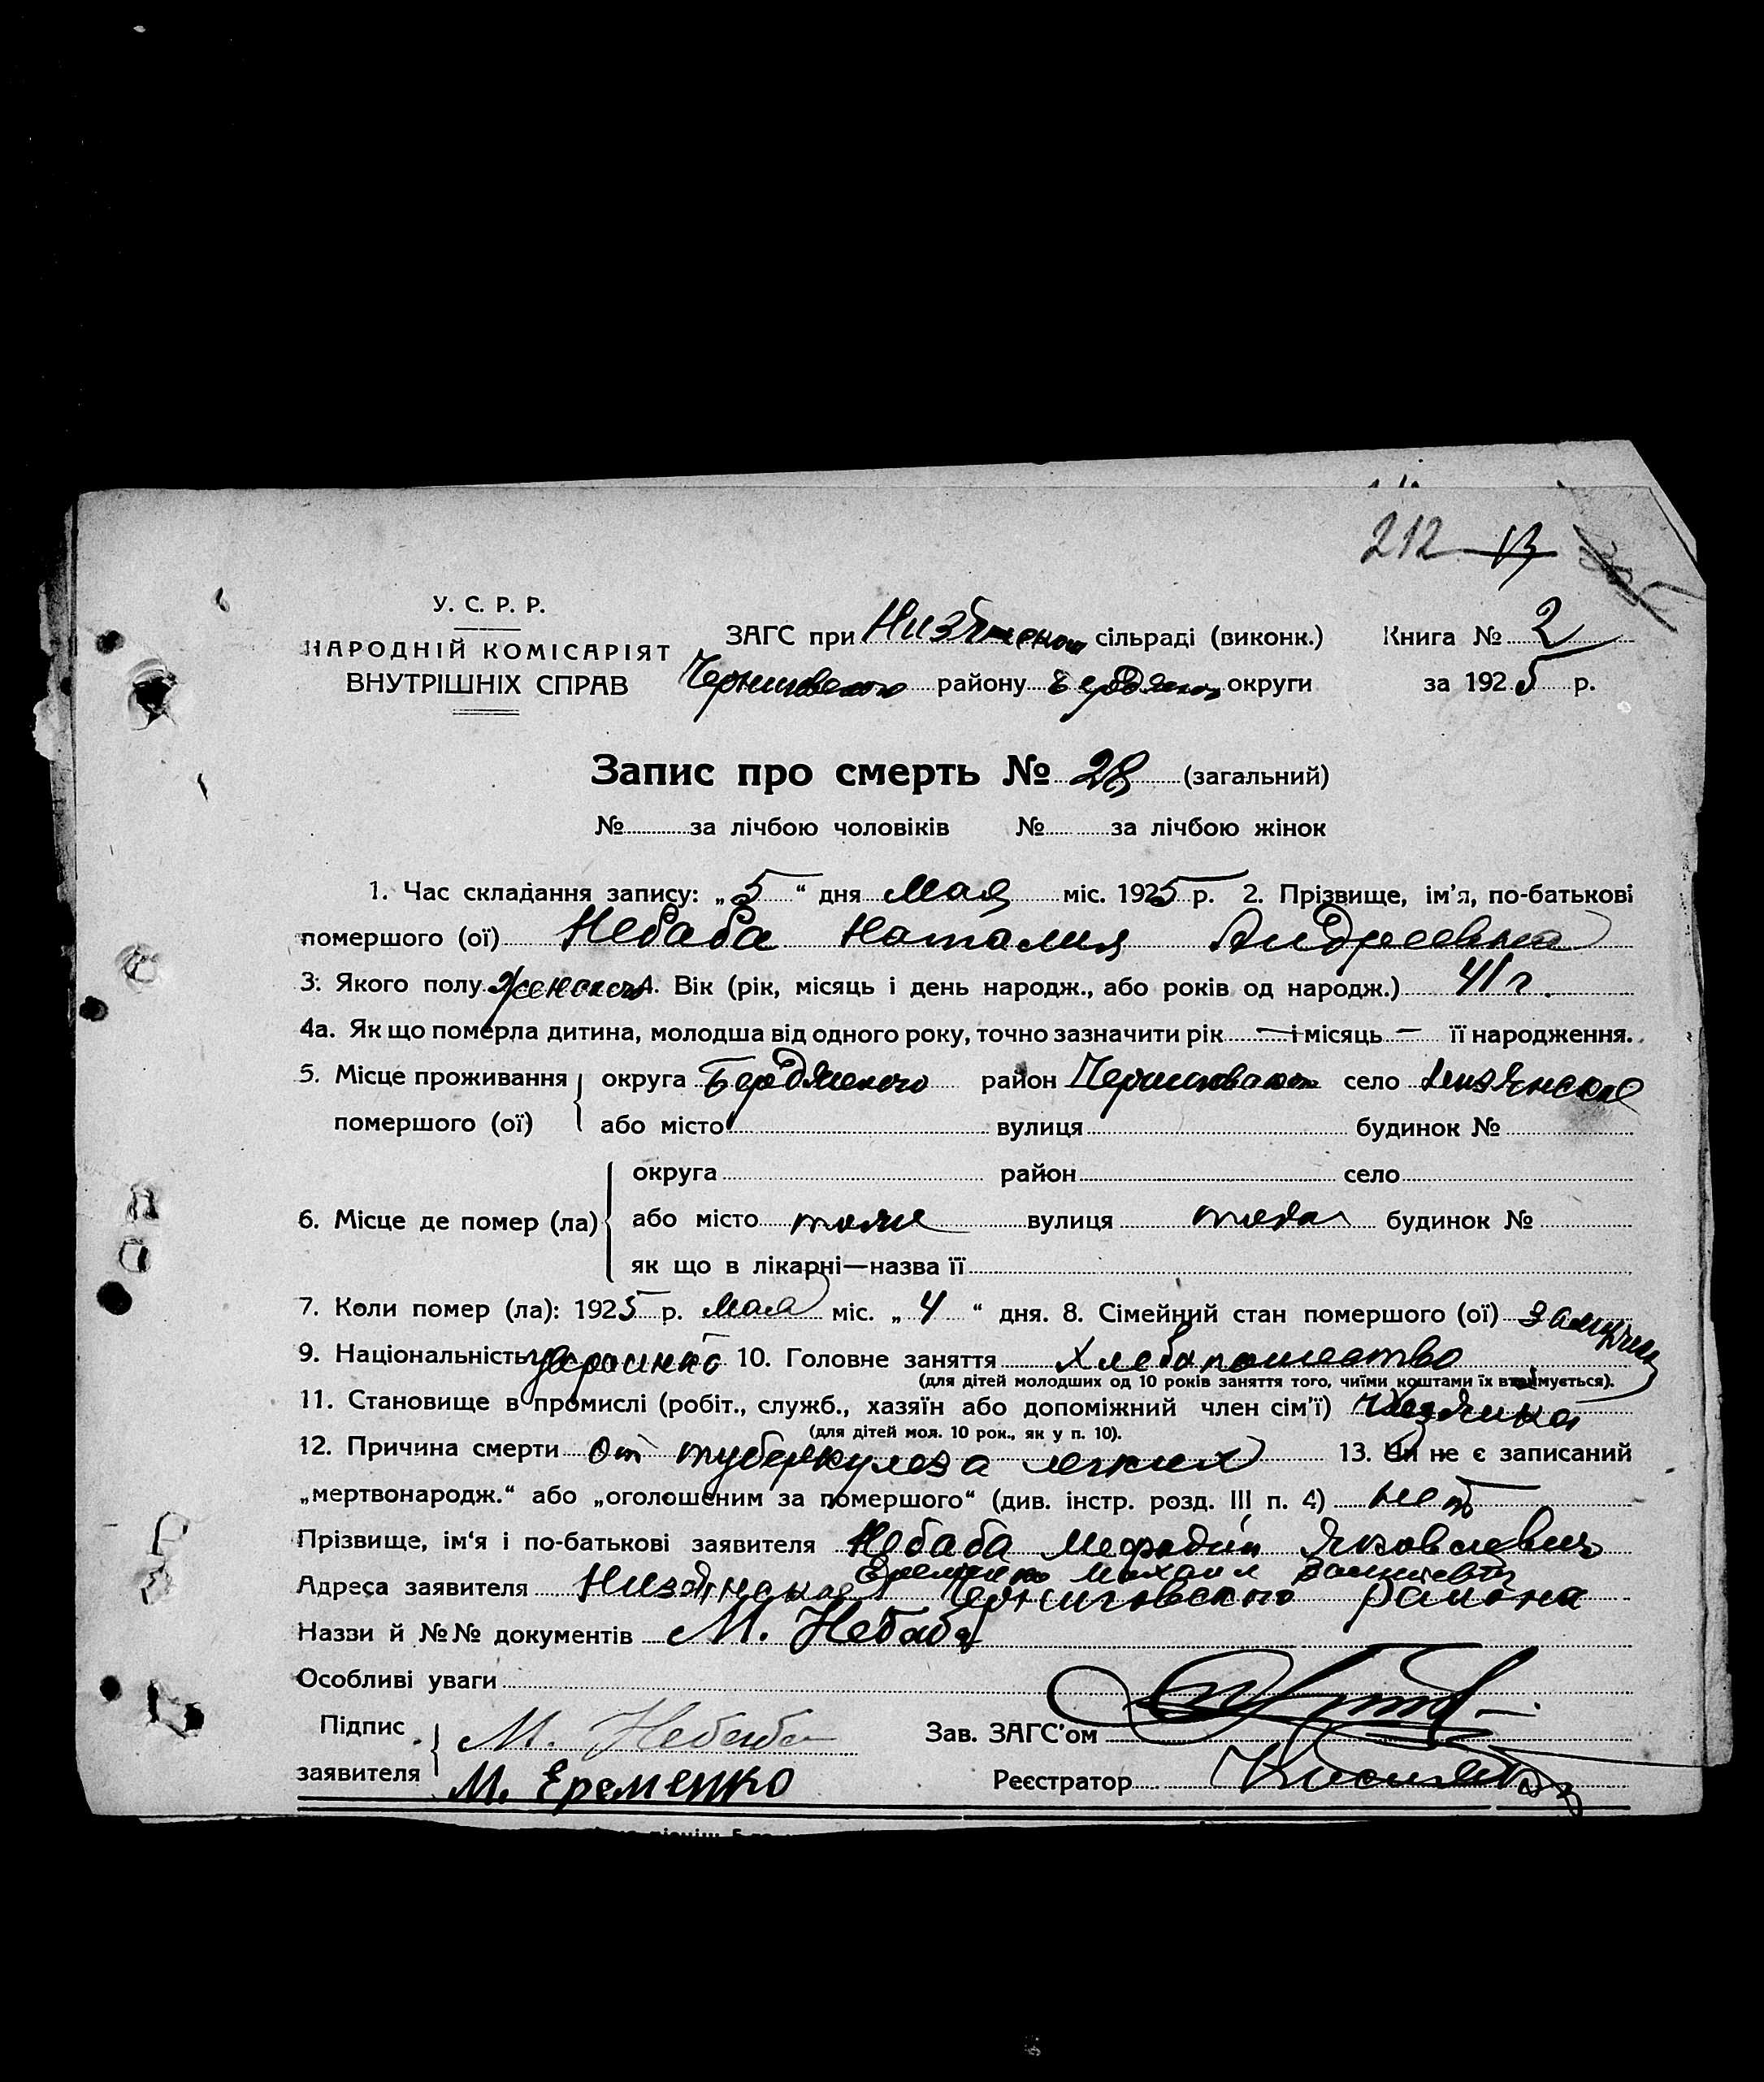 212 13
У. С. Р. Р.
НАРОДНІЙ КОМІСАРІЯТ
ВНУТРІШНІХ СПРАВ
ЗАГС при Низянском сільраді (виконк.) Книга № 2
Черниговского району Бердянск округи за 1925 р.
Запис про смерть № 28 (загальний)
№ за лічбою чоловіків № за лічбою жінок
1. Час складання запису: „5“ дня Мая міс. 1925 р. 2. Прізвище, ім'я, по-батькові
помершого (ої) Небаба Наталия Андреевна
3. Якого полу женского 4. Вік (рік, місяць і день народж., або років од народж.) 41 г.
4а. Як що померла дитина, молодша від одного року, точно зазначити рік — і місяць — її народження.
5. Місце проживання помершого (ої) округа Бердянского район Черниговского село Низянское
або місто вулиця будинок №
округа район село
6. Місце де помер (ла) або місто тоже вулиця тоже будинок №
як що в лікарні—назва її
7. Коли помер (ла): 1925 р. Мая міс. „4“ дня. 8. Сімейний стан помершого (ої) замужем
9. Національність украинка 10. Головне заняття Хлебопашество
(для дітей молодших од 10 років заняття того, чиїми коштами їх втримується).
11. Становище в промислі (робіт., служб., хазяїн або допоміжний член сім'ї) Хозяйка
(для дітей мол. 10 рок., як у п. 10).
12. Причина смерти От туберкулеза легких 13. Чи не є записаний
„мертвонародж.“ або „оголошеним за помершого“ (див. інстр. розд. III п. 4) нет
Прізвище, ім'я і по-батькові заявителя Небаба Мефодий Яковлевич
Еременко Михаил
Адреса заявителя Низянское Черниговского района
Назви й №№ документів М. Небаба
Особливі уваги
Підпис заявителя М. Небаба Зав. ЗАГС'ом
М. Еременко Реєстратор